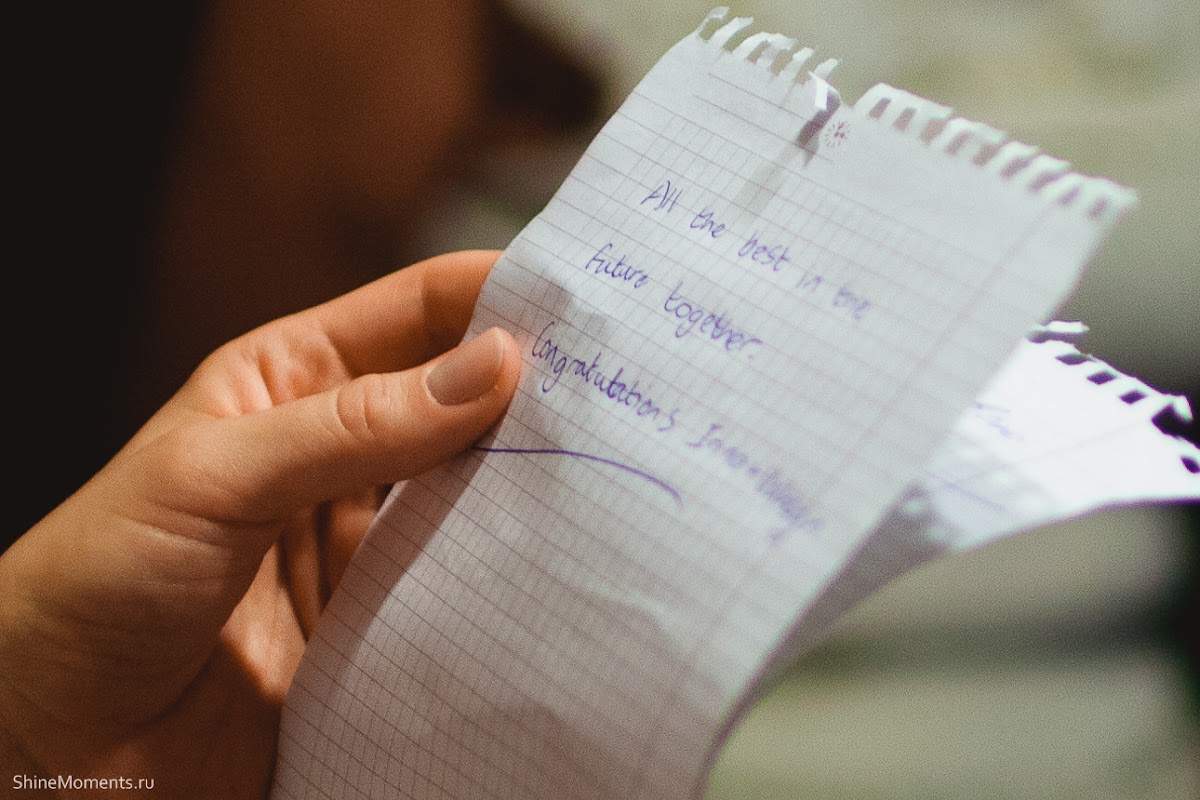 All the best in the
future together.
Congratulations
ShineMoments.ru